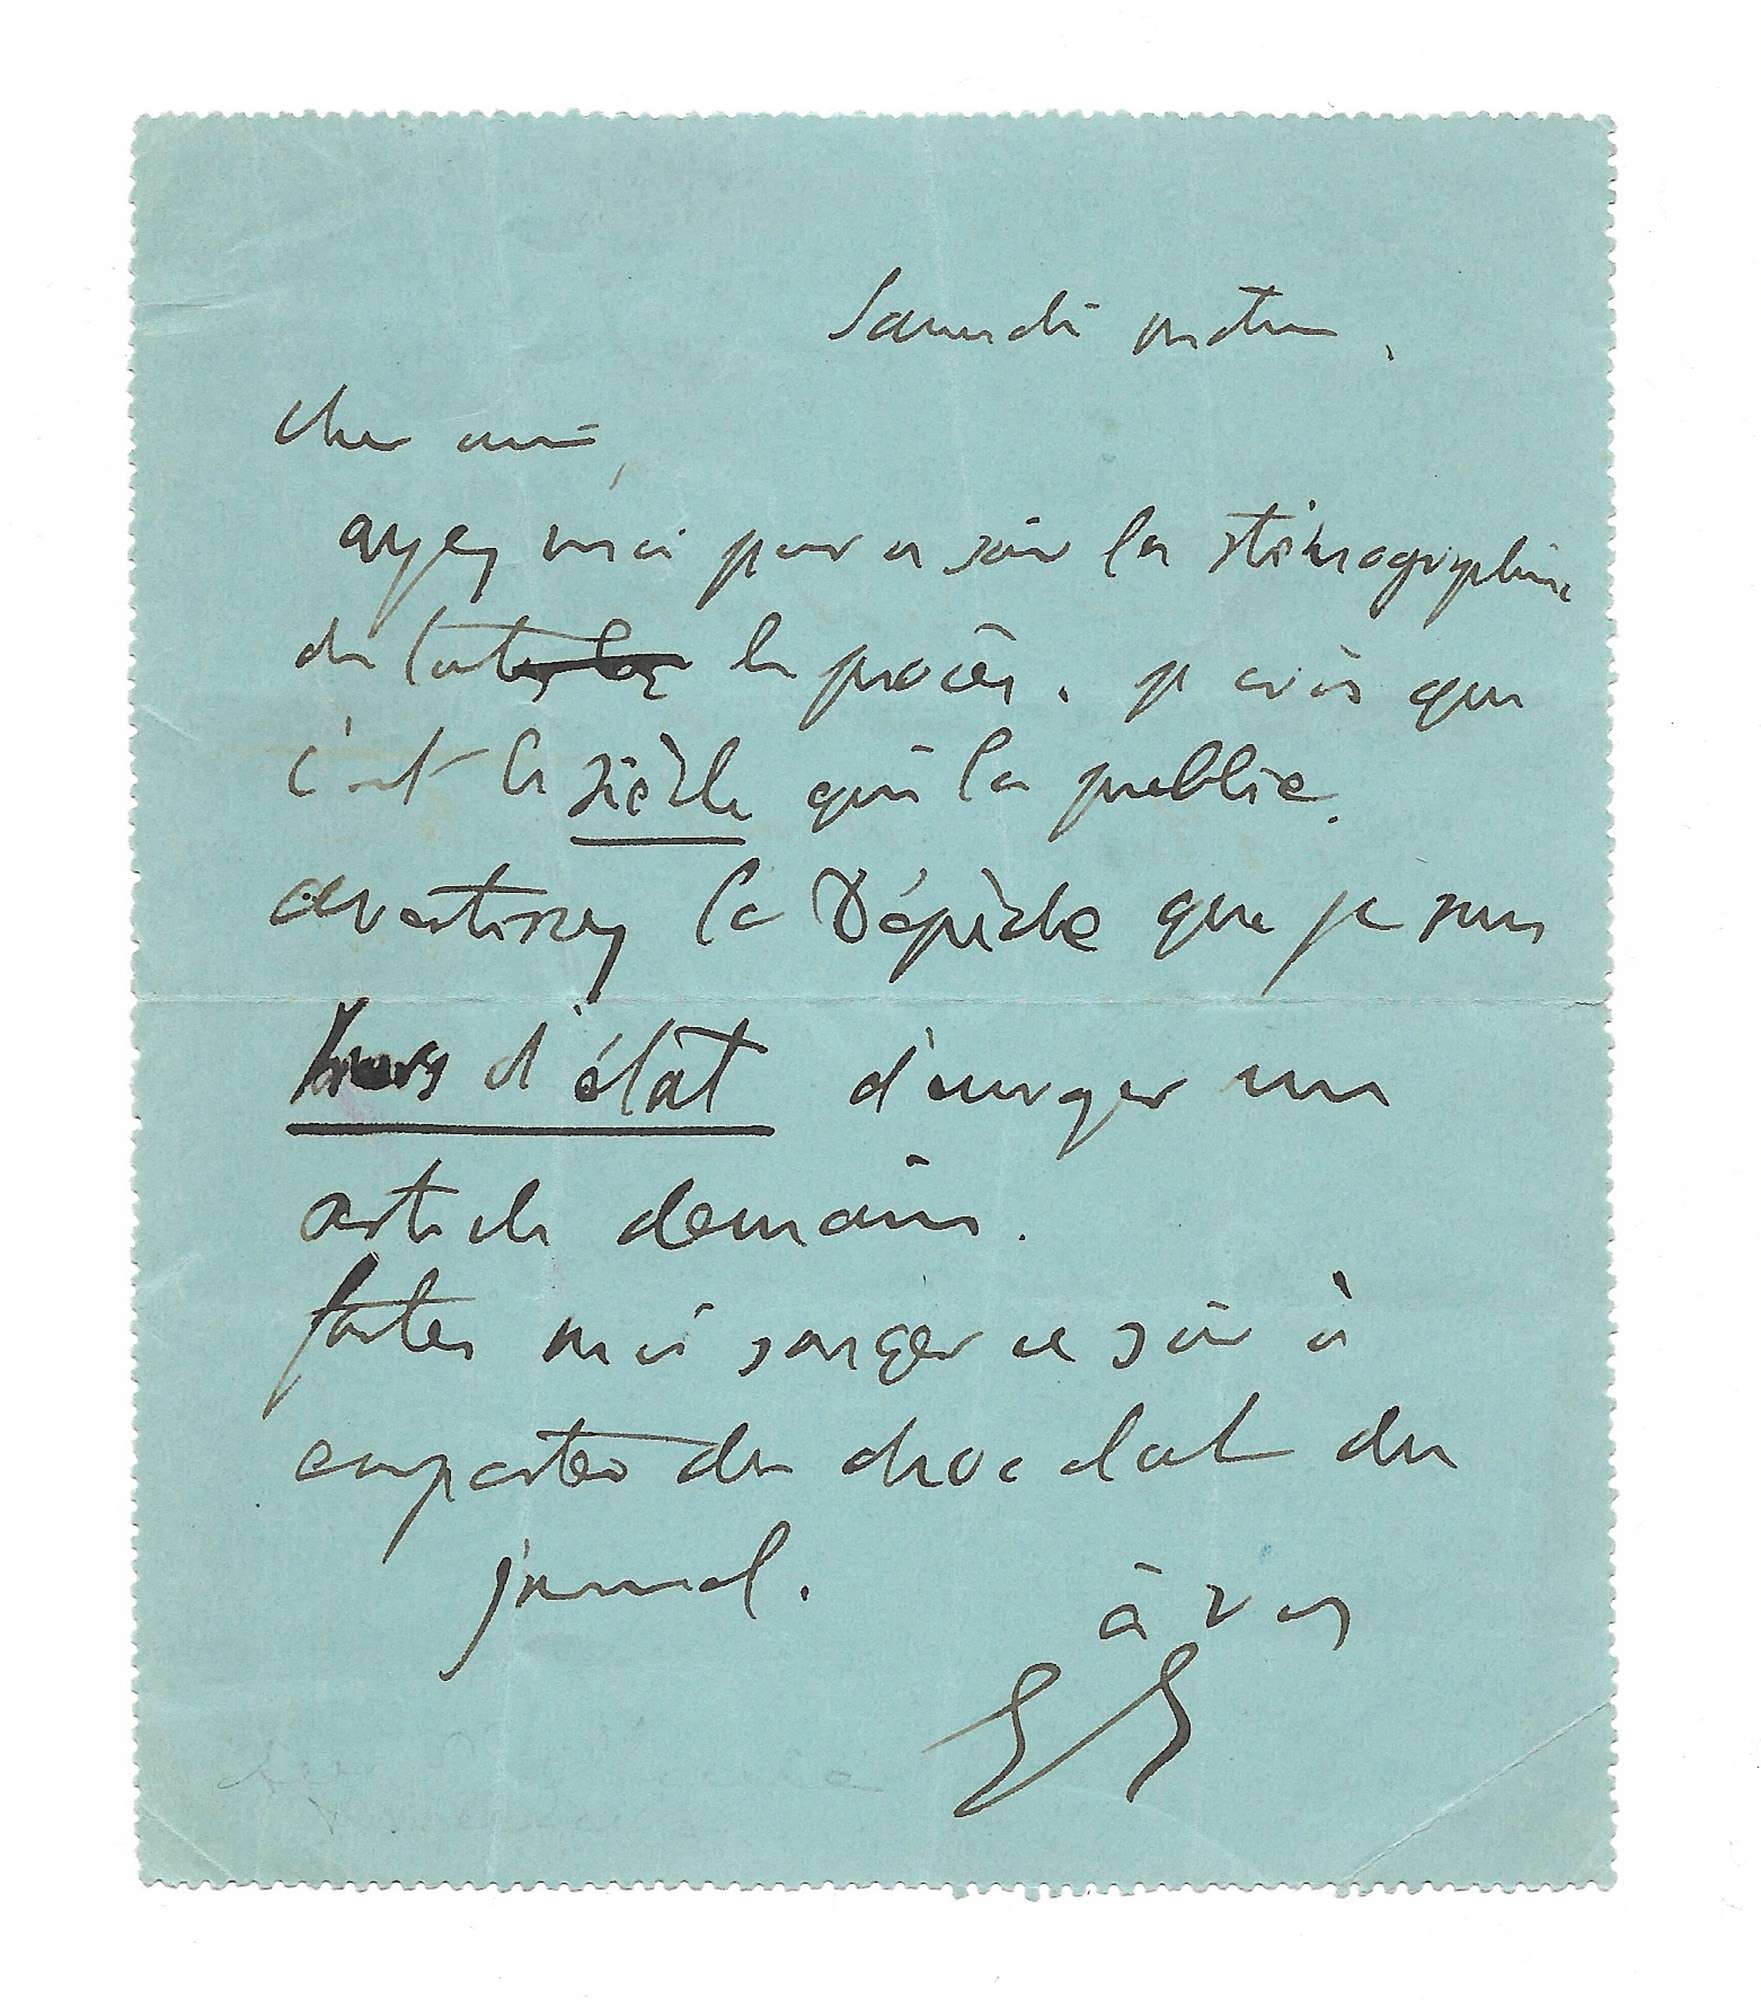 Samedi matin.
Cher ami,
ayez moi pour ce soir la sténographie
de tout le procès. je crois que
c'est le siècle qui la publie.
avertissez la Dépêche que je suis
hors d'état d'envoyer un
article demain.
faites moi songer ce soir à
emporter du chocolat du
journal.
à vous